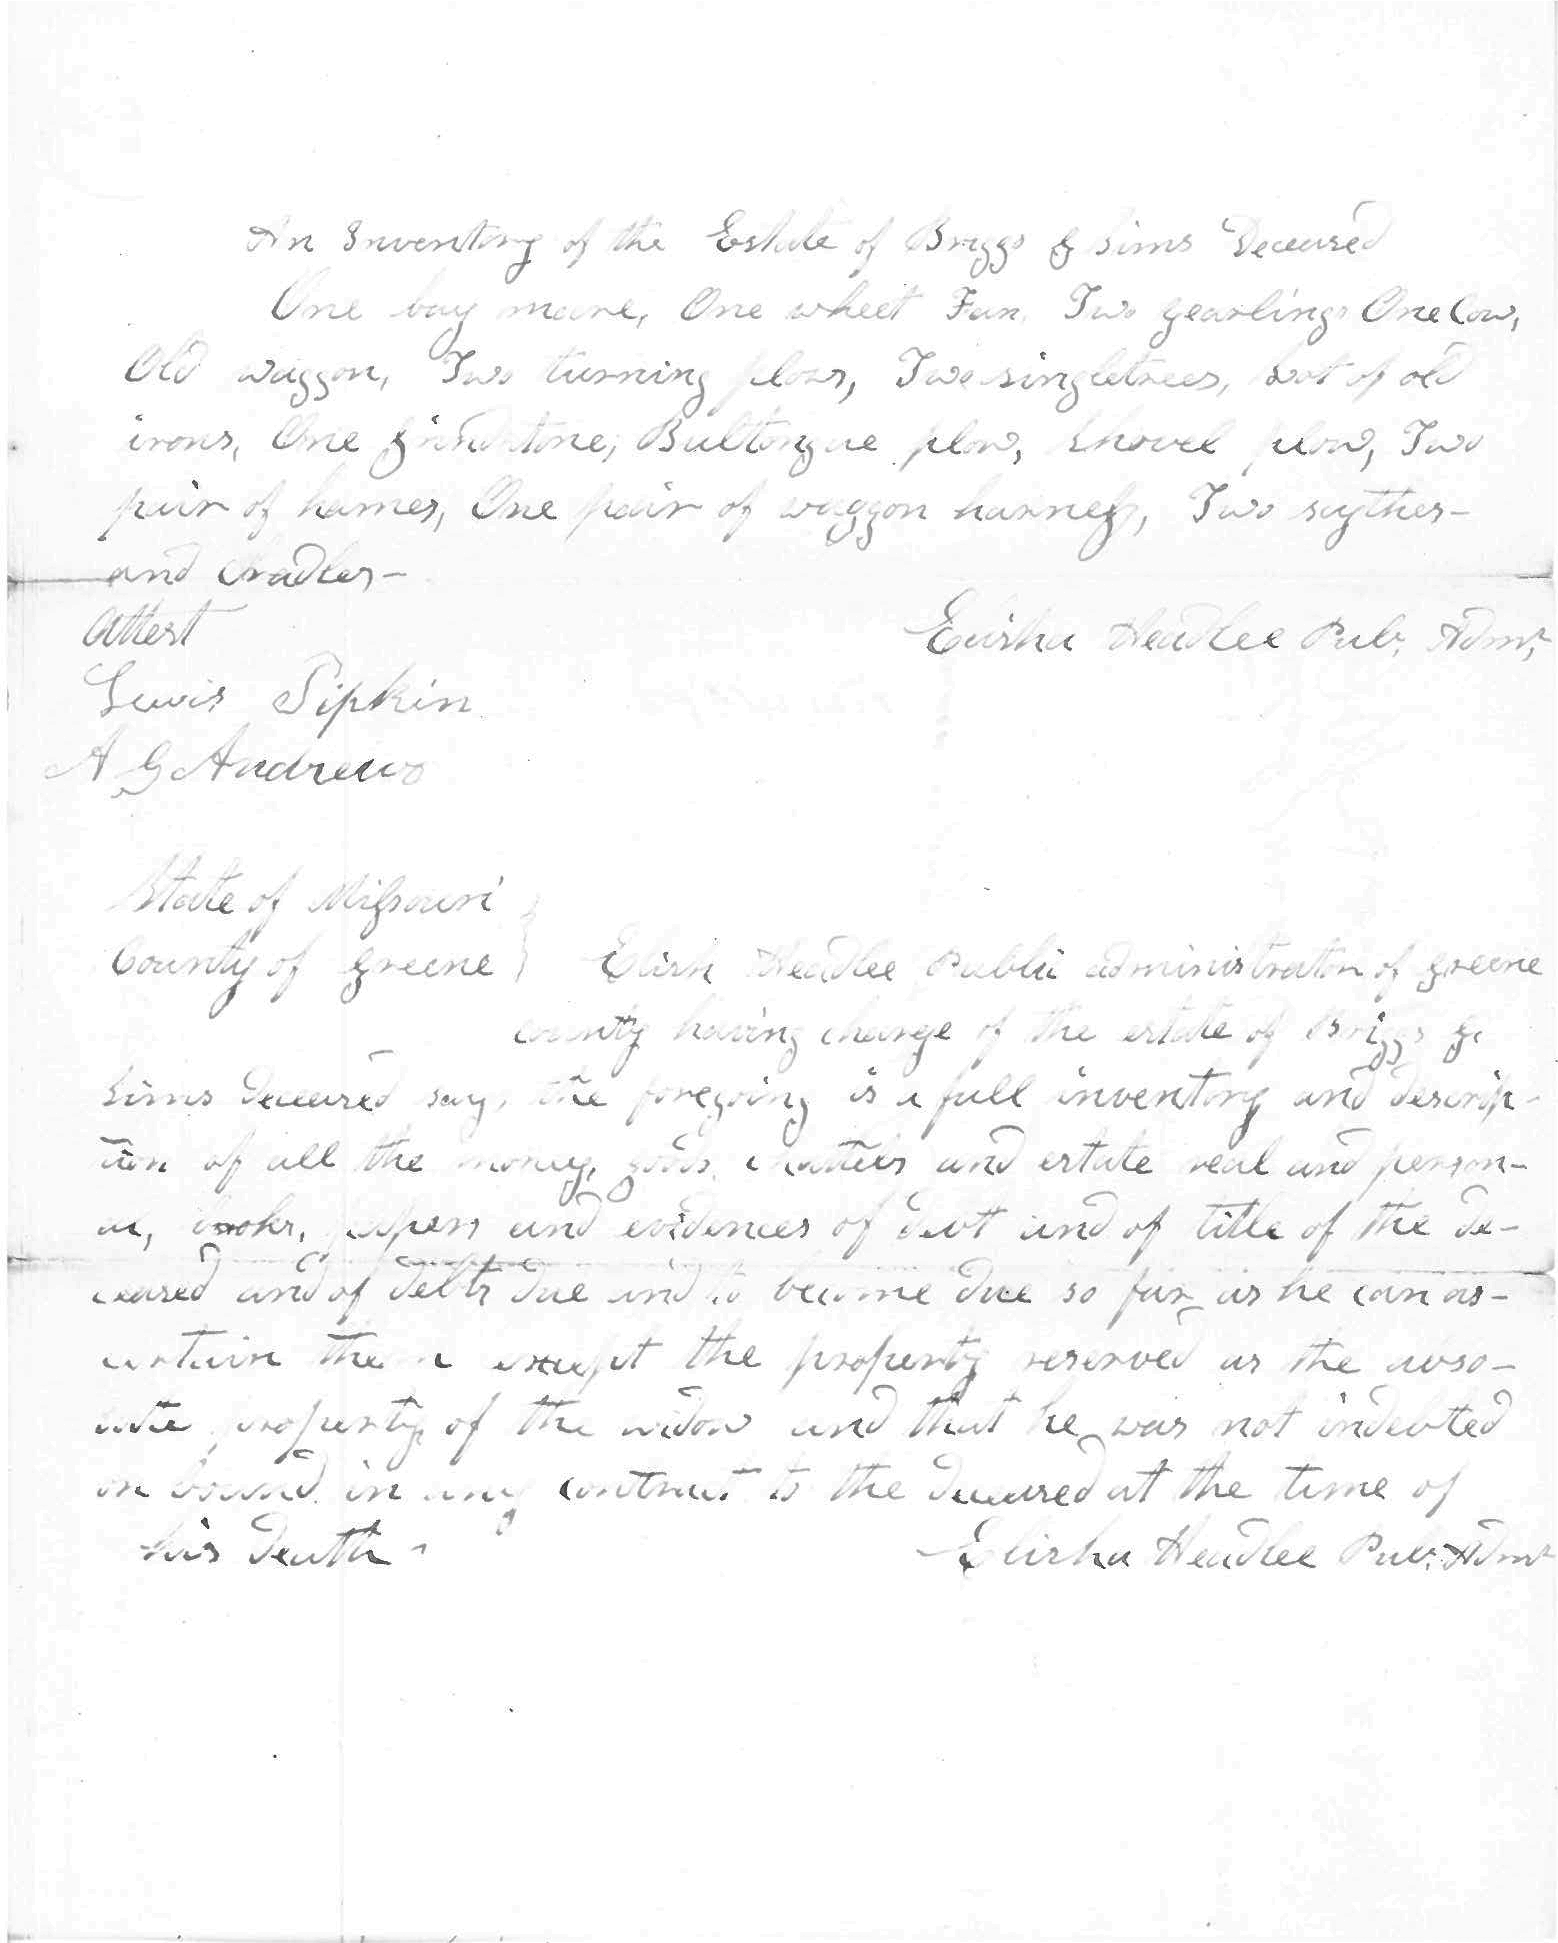 An Inventory of the Estate of Briggs G Sims Deceased
One bay mare, One wheet Fan, Two yearlings One Cow,
Old waggon, Two turning plows, Two singletrees, Lot of old
irons, One grindstone, Bultongue plow, Shovel plow, Two
pair of hames, One pair of waggon harness, Two sythes-
and Cradles-
Attest
Elisha Headlee Pub, Admr,
Lewis Sipkin
A G Andrews
State of Missouri
County of Greene } Elish Headlee Public administrator of Greene
county having charge of the estate of Briggs G.
Sims Deceased says the foregoing is a full inventory and descrip-
tion of all the money, goods, chattels and estate real and person-
al, books, papers and evidences of debt and of title of the de-
ceased and of debts due and to become due so far as he can as-
certain them except the property reserved as the abso-
lute property of the widow and that he was not indebted
or bound in any contract to the deceased at the time of
his death-
Elisha Headlee Pub. Admr